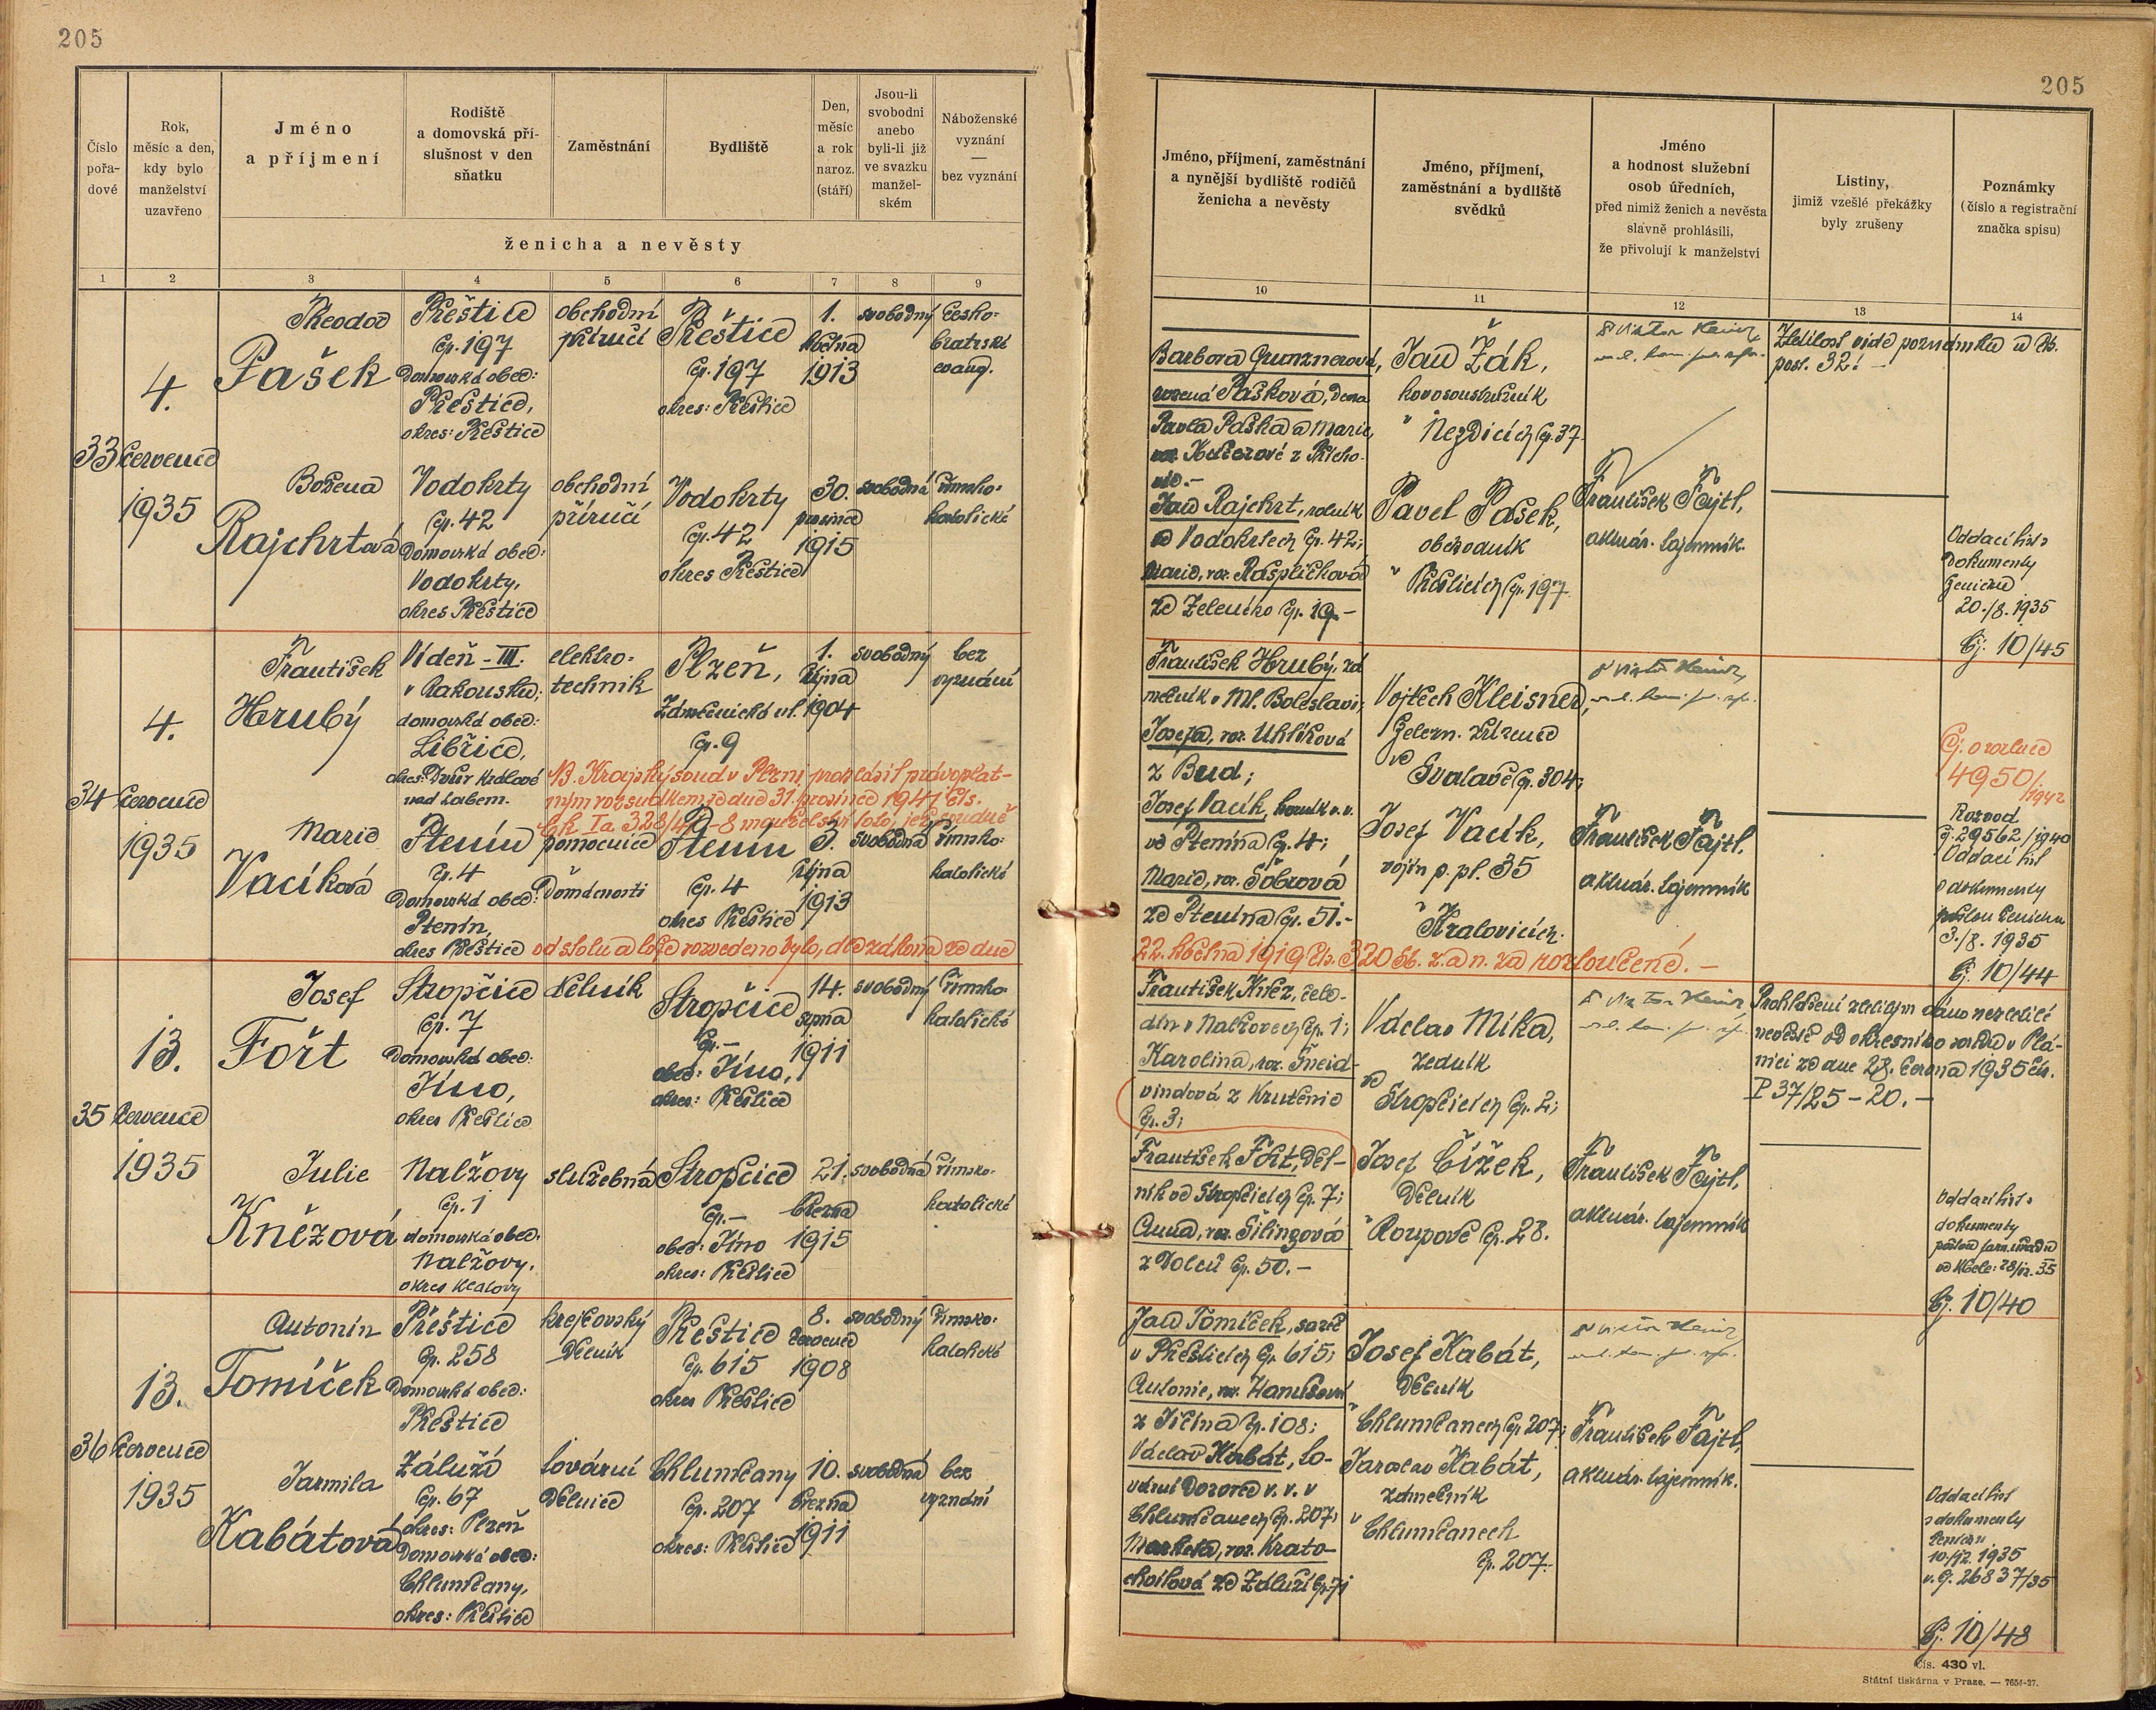 205
205
Číslo pořa-dové
Rok, měsíc a den, kdy bylo manželství uzavřeno
Jméno a příjmení
Rodiště a domovská pří-slušnost v den sňatku
Zaměstnání
Bydliště
Den, měsíc a rok naroz. (stáří)
Jsou-li svobodni anebo byli-li již ve svazku manžel-ském
Náboženské vyznání — bez vyznání
ženicha a nevěsty
Jméno, příjmení, zaměstnání a nynější bydliště rodičů ženicha a nevěsty
Jméno, příjmení, zaměstnání a bydliště svědků
Jméno a hodnost služební osob úředních, před nimiž ženich a nevěsta slavně prohlásili, že přivolují k manželství
Listiny, jimiž vzešlé překážky byly zrušeny
Poznámky (číslo a registrační značka spisu)
1 2 3 4 5 6 7 8 9 10 11 12 13 14
33
4.
července
1935
Theodor
Pašek
Přeštice
čp. 197
Domovská obec:
Přeštice,
okres: Přeštice
obchodní
příručí
Přeštice
čp. 197
okres: Přeštice
1.
května
1913
svobodný
česko-
bratrské
evang.
Božena
Rajchrtová
Vodokrty
čp. 42
Domovská obec:
Vodokrty,
okres Přeštice
obchodní
příručí
Vodokrty
čp. 42
okres Přeštice
30.
prosince
1915
svobodná
římsko-
katolické
Barbora Grunznerová,
rozená Pašková, dcera
Pavla Paška a Marie,
Jan Rajchrt, rolník
ve Vodokrtech čp. 42;
Marie, roz. Rašpličková
ze Zeleného čp. 19.-
v
Jan Žák,
kovosoustružník
v Nezdicích čp. 37.
Pavel Pašek,
obchodník
v Přešticích čp. 197.
František Fajtl,
aktuár. tajemník.
Zletilost vide poznámka u čís.
posl. 32! -
Oddací list
Dokumenty
ženichu
20./8. 1935
Čj. 10/45
34
4.
července
1935
František
Hrubý
Vídeň - III.
v Rakousku;
domovská obec:
Libřice,
okres: Dvůr Králové
nad Labem.
elektro-
technik
Plzeň,
Zámečnická ul.
čp. 9
1.
října
1904
svobodný
bez
vyznání
NB. Krajský soud v Plzni prohlásil právoplat-
ným rozsudkem ze dne 31. prosince 1941 čís.
Ck Ia 328/41-8 manželství toto, jež soudně
Marie
Vacíková
Ptenín
čp. 4
Domovská obec:
Ptenín,
okres Přeštice
pomocnice
v domácnosti
Ptenín
čp. 4
okres Přeštice
3.
října
1913
svobodná
římsko-
katolické
od stolu a lože rozvedeno bylo, dle zákona ze dne
22. května 1919 čís. 320 Sb. z. a n. za rozloučené. -
František Hrubý, zá-
mečník v Ml. Boleslavi;
Josefa, roz. Uhlíková
z Brud;
Josef Vacík, horník v. v.
ve Ptenína čp. 4;
Marie, roz. Šobrová
ze Ptenína čp. 51.-
Vojtěch Kleisner,
železn. zřízenec
ve
Svalavě čp. 304;
Josef Vacík,
vojín p. pl. 35
v Kralovicích.
František Fajtl,
aktuár. tajemník
Čj. o rozluce
4950/1942
Rozvod
čj. 29562/1940
Oddací list
a dokumenty
3./8. 1935
Čj. 10/44
35
13.
července
1935
Josef
Fořt
Stropčice
čp. 7
Domovská obec:
Jíno,
okres Přeštice
dělník
Stropčice
čp. -
obec: Jíno,
okres: Přeštice
14.
srpna
1911
svobodný
římsko-
katolické
Julie
Knězová
Nalžovy
čp. 1
domovská obec:
Nalžovy.
okres Klatovy
služebná
Stropčice
čp. -
obec: Jíno
okres: Přeštice
21.
března
1915
svobodná
římsko-
katolické
František Kněz, čele-
dín v Nalžovech čp. 1;
Karolina, roz. Šneid-
vindová z Krutěnic
čp. 3;
František Fořt, děl-
ník ve Stropčicích čp. 7;
Anna, roz. Šilingová
z Dolců čp. 50. -
Václav Míka,
zedník
ve
Stropčicích čp. 2;
Josef Čížek,
dělník
v Roupově čp. 28.
František Fajtl,
aktuár. tajemník
Prohlášení zletilým dáno nezletilé
nevěstě od okresního soudu v Plá-
nici ze dne 28. června 1935 čís.
P 37/25 - 20. -
Oddací list
dokumenty
Čj. 10/40
36
13.
července
1935
Antonín
Tomíček
Přeštice
čp. 258
Domovská obec:
Přeštice
krejčovský
dělník
Přeštice
čp. 615
okres Přeštice
8.
července
1908
svobodný
římsko-
katolické
Jarmila
Kabátová
Zálužá
čp. 67
okres: Plzeň
Domovská obec:
Chlumčany,
okres: Přeštice
tovární
dělnice
Chlumčany
čp. 207
okres: Přeštice
10.
března
1911
svobodná
bez
vyznání
Jan Tomíček,
v Přešticích čp. 615;
Antonie, roz. Hanušová
z Jíčína čp. 108;
Václav Kabát, to-
vární dozorce v. v. v
Chlumčanech čp. 207;
Markéta, roz. Krato-
chvílová ze Záluží čp. 7;
Josef Kabát,
dělník
v Chlumčanech čp. 207;
Jaroslav Kabát,
zámečník
v Chlumčanech
čp. 207.
František Fajtl,
aktuár. tajemník.
Oddací list
a dokumenty
ženichu
10./12. 1935
v. čj. 26837/35
Čj. 10/48
Čís. 430 vl.
Státní tiskárna v Praze. — 7654-27.